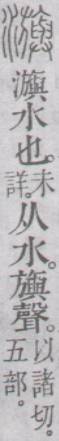 㶛
㶛水也。未詳。从水。旟聲。以諸切。五部。